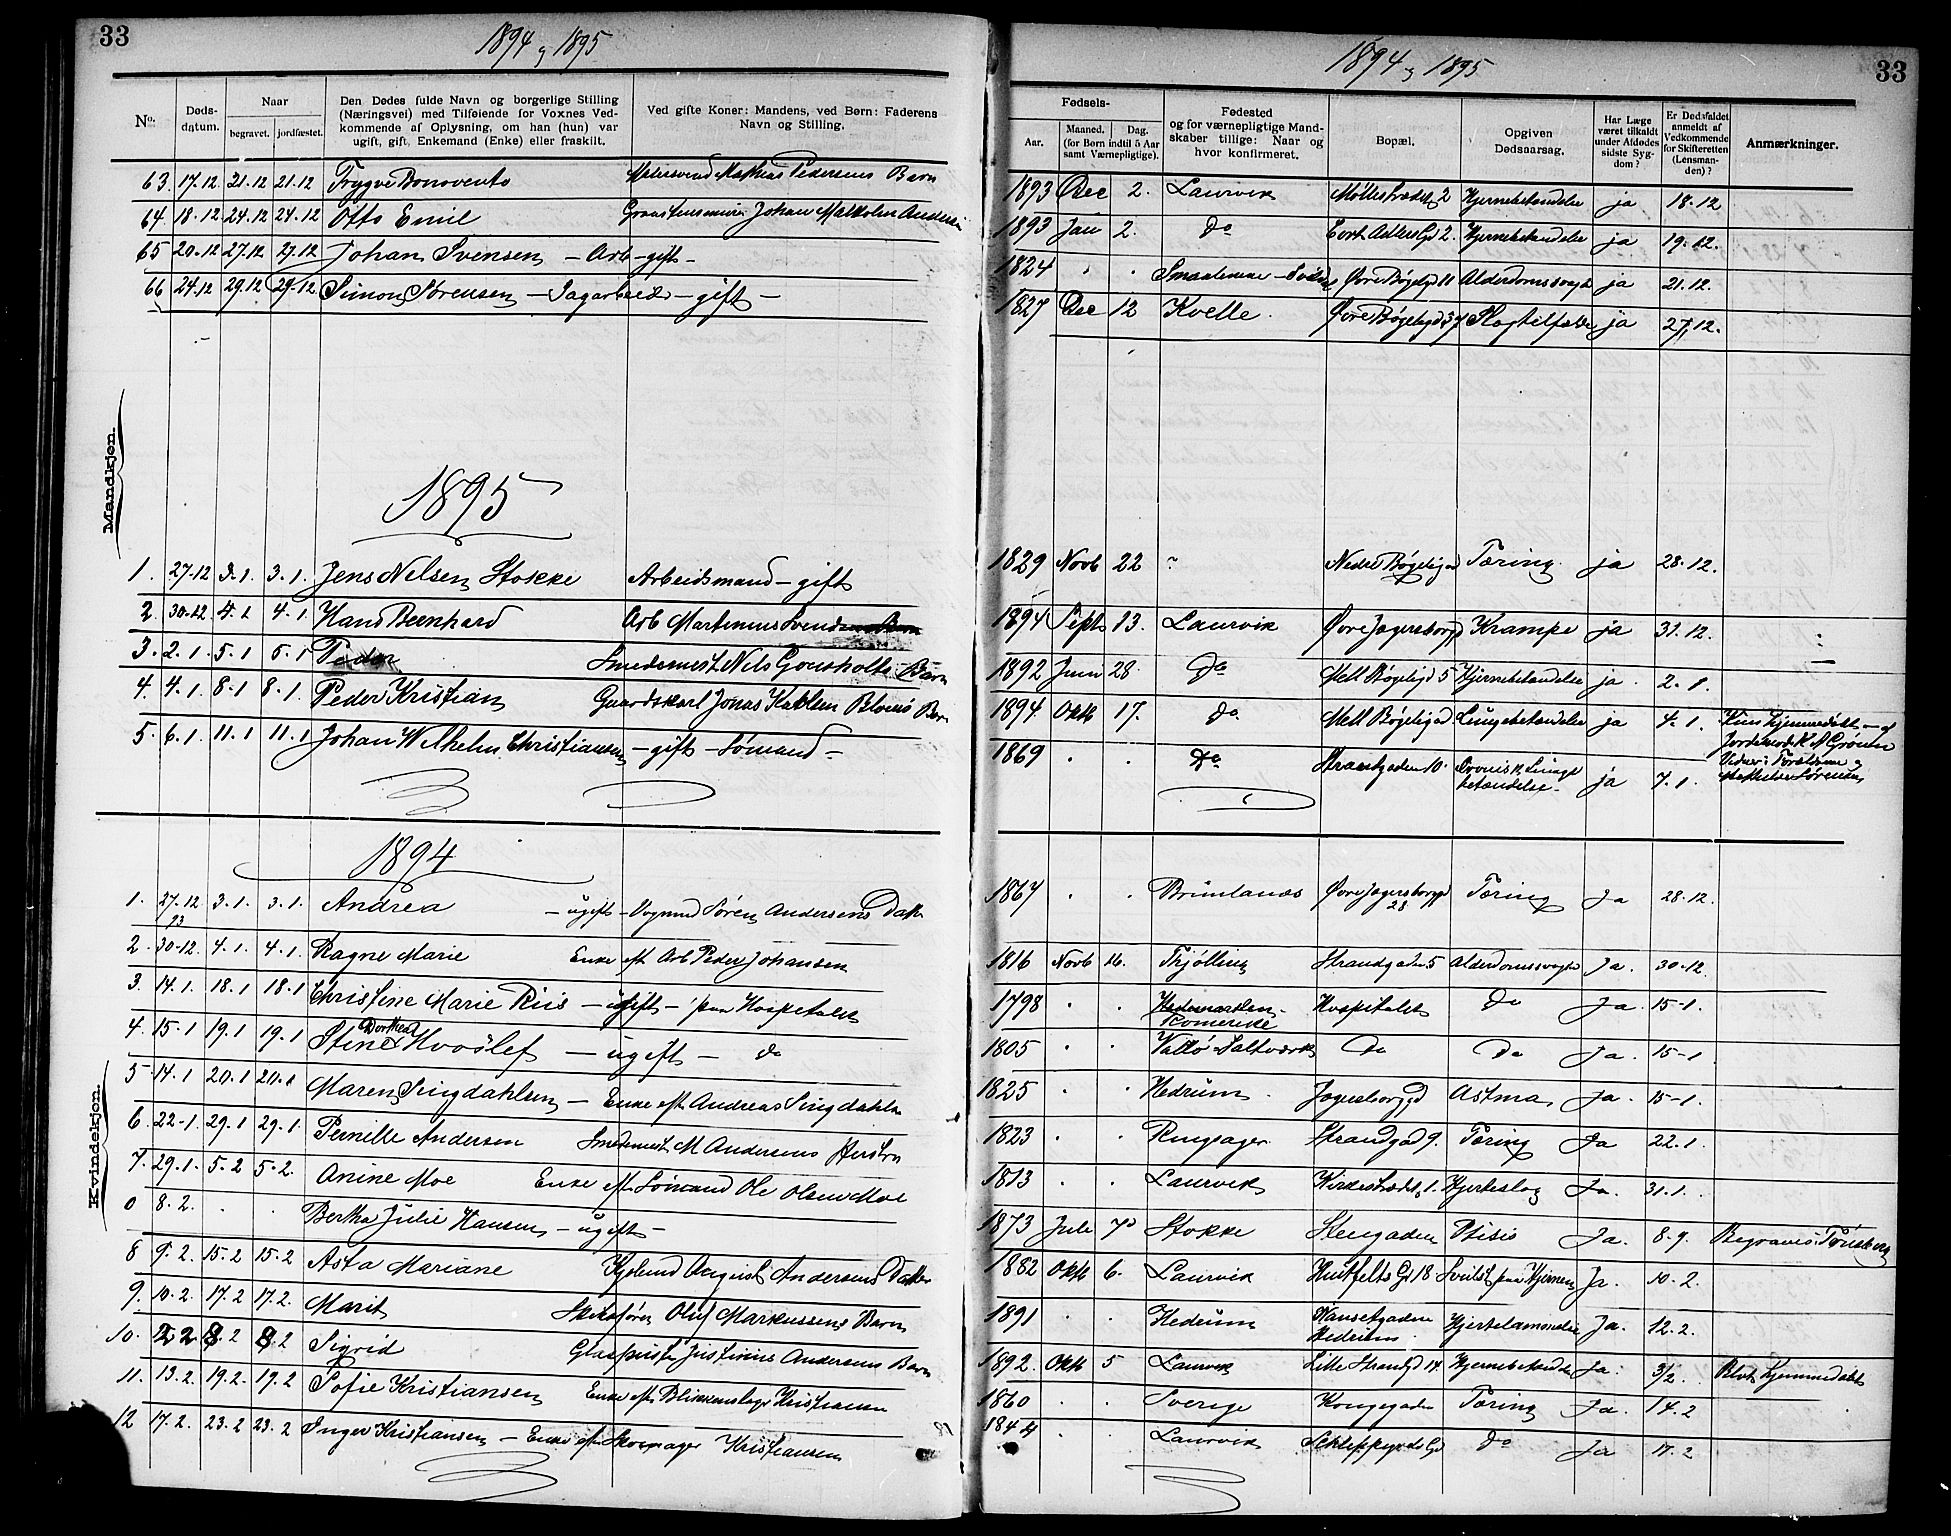 33
1894 og 1895
No.
Døds-
datum.
Naar
begravet.
jordfæstet.
Den Dødes fulde Navn og borgerlige Stilling
(Næringsvei) med Tilføiende for Voxnes Ved-
kommende af Oplysning, om han (hun) var
ugift, gift, Enkemand (Enke) eller fraskilt.
Ved gifte Koner: Mandens, ved Børn: Faderens
Navn og Stilling.
Mandkjøn.
63. 17.12 21.12 21.12 Trygve Bonovento Mathias Pedersens Barn
64. 18.12 24.12 24.12 Otto Emil Johan Malkolm Andersen
65 20.12 27.12 27.12 Johan Svensen – Arb – gift –
66 24.12 29.12 29.12 Simon Sørensen – Sagarbeid – gift –
1895
1. 27-12 3.1. 3.1. Jens Nilsen Stokke Arbeidsmand – gift
2. 30-12 4.1 4.1 Hans Bernhard Arb Martinius Svendsen Barn
3. 2.1 5.1 5.1 Peder Smedemest Nils Gonsholts Barn
4. 4.1 8.1 8.1. Peder Kristian Gaardskarl Jonas Barn
5. 6.1. 11.1 11.1 Johan Wilhelm Christiansen – gift – Sømand –
1894
Kvindekjøn.
1. 27.12/93 3.1. 3.1. Andrea – ugift – Vognmd Søren Andersens Datt
2. 30-12. 4.1. 4.1. Ragne Marie Enke eft Arb Peder Johansen
3. 14.1. 18.1 18.1 Christine Marie Riis – ugift – paa Hospitalet
4. 15.1 19.1 19.1 Stine Dorthea Hvoslef – ugift – do
5 14.1 20.1 20.1 Maren Singdahlsen – Enke eft Andreas Singdahlsen
6. 22-1. 29.1 29.1. Pernille Andersen Smedemest M Andersens Hustru
7. 29.1. 5.2 5.2. Anine Moe Enke eft Sømand Ole Olsen Moe
0 8.2. . . Bertha Julie Hansen – ugift –
8 9.2 15.2 15.2 Asta Mariane August Andersens Datter
9. 10.2. 17.2 17.2. Marit Skibsfører Oluf Markussens Barn
10. 2.2 8.2 8.2 Sigrid Glaspuster Justinius Andersens Barn
11. 13.2. 19.2. 19.2 Sofie Kristiansen Enke eft Blikkenslager Kristiansen
12 17.2. 23.2 23.2 Inger Kristiansen – Enke eft Skomager Kristiansen
33
1894 og 1895
Fødsels-
Aar.
Maaned.
Dag.
(for Børn indtil 5 Aar
samt Værnepligtige).
Fødested
og for værnepligtige Mand-
skaber tillige: Naar og
hvor konfirmeret.
Bopæl.
Opgiven
Dødsaarsag.
Har Læge
været tilkaldt
under Afdødes
sidste Syg-
dom?
Er Dødsfaldet
anmeldt af
Vedkommende
for Skifteretten
(Lensman-
den)?
Anmærkninger.
1893 Dec 2. Laurvik Møllestrædet 2 Hjernebetændelse ja 18.12
1893 Jan 2. do Cort Adlers Gd 2. Hjernebetændelse ja 19.12.
1824 . . Smaalenene Øvre Bøgeligd 11 Alderdomssvagh ja 21.12.
1827 Dec 12 Kvelle Øvre Bøgeligd 37 Slagtilfælde ja 27.12.
1829 Novb 22 Nedre Bøgeligd Tæring ja 28.12.
1894 Septb 13. Laurvik Øvre Jegersborggd Krampe ja 31.12.
1892 Juni 28. do Mell Bøgeligd 5 Hjernebetændelse ja. 2.1.
1894 Okt 17. do Mell Bøgeligd Lungebetændelse ja 4.1.
1869 . . do Strandgaden 10. Cronisk Lunge-
betændelse. ja 7.1.
1864 . . Brunlanæs Øvre Jegersborggd 28 Tæring Ja 28.12.
1816 Novb 16. Tjølling Strandgaden 5 Alderdomssvaghed Ja. 30.12.
1798 . . Hedemarken
Romerike Hospitalet do Ja 15-1.
1805 . . Vallø Saltværk Do Do Ja. 15-1
1825 . . Hedrum Jegersborggd Astma Ja. 15-1.
1823 . . Ringsager Strandgad 9. Tæring Ja 22.1.
1813 . . Laurvik Kirkestrædet 1. Hjerteslag Ja. 31.1.
1873 Juli 7 Stokke Stengaden Ptisis Ja. 8.9. Begraves i Tønsberg
1882 Okt 6. Laurvik Huitfelts Gd 18 Svulst paa Hjernen Ja. 10.2.
1891 . . Hedrum Hansetgaden
Hedrum Ja. 12.2.
1892. Okt 5 Laurvik Lille Strandgd 14. Hjernebetændelse Ja. 3/2. Hjemmedøbt
1860 . . Sverige Kongegaden Tæring Ja. 14.2
1844 . . Laurvik do Ja 17.2